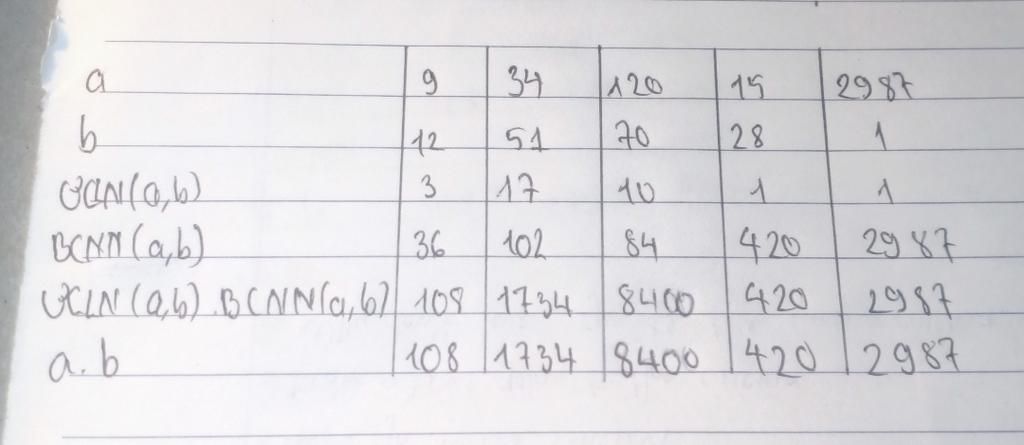 a 9 34 120 15 2987
b 12 51 70 28 1
ƯCLN(a,b) 3 17 10 1 1
BCNN(a,b) 36 102 84 420 2987
ƯCLN(a,b).BCNN(a,b) 108 1734 8400 420 2987
a.b 108 1734 8400 420 2987